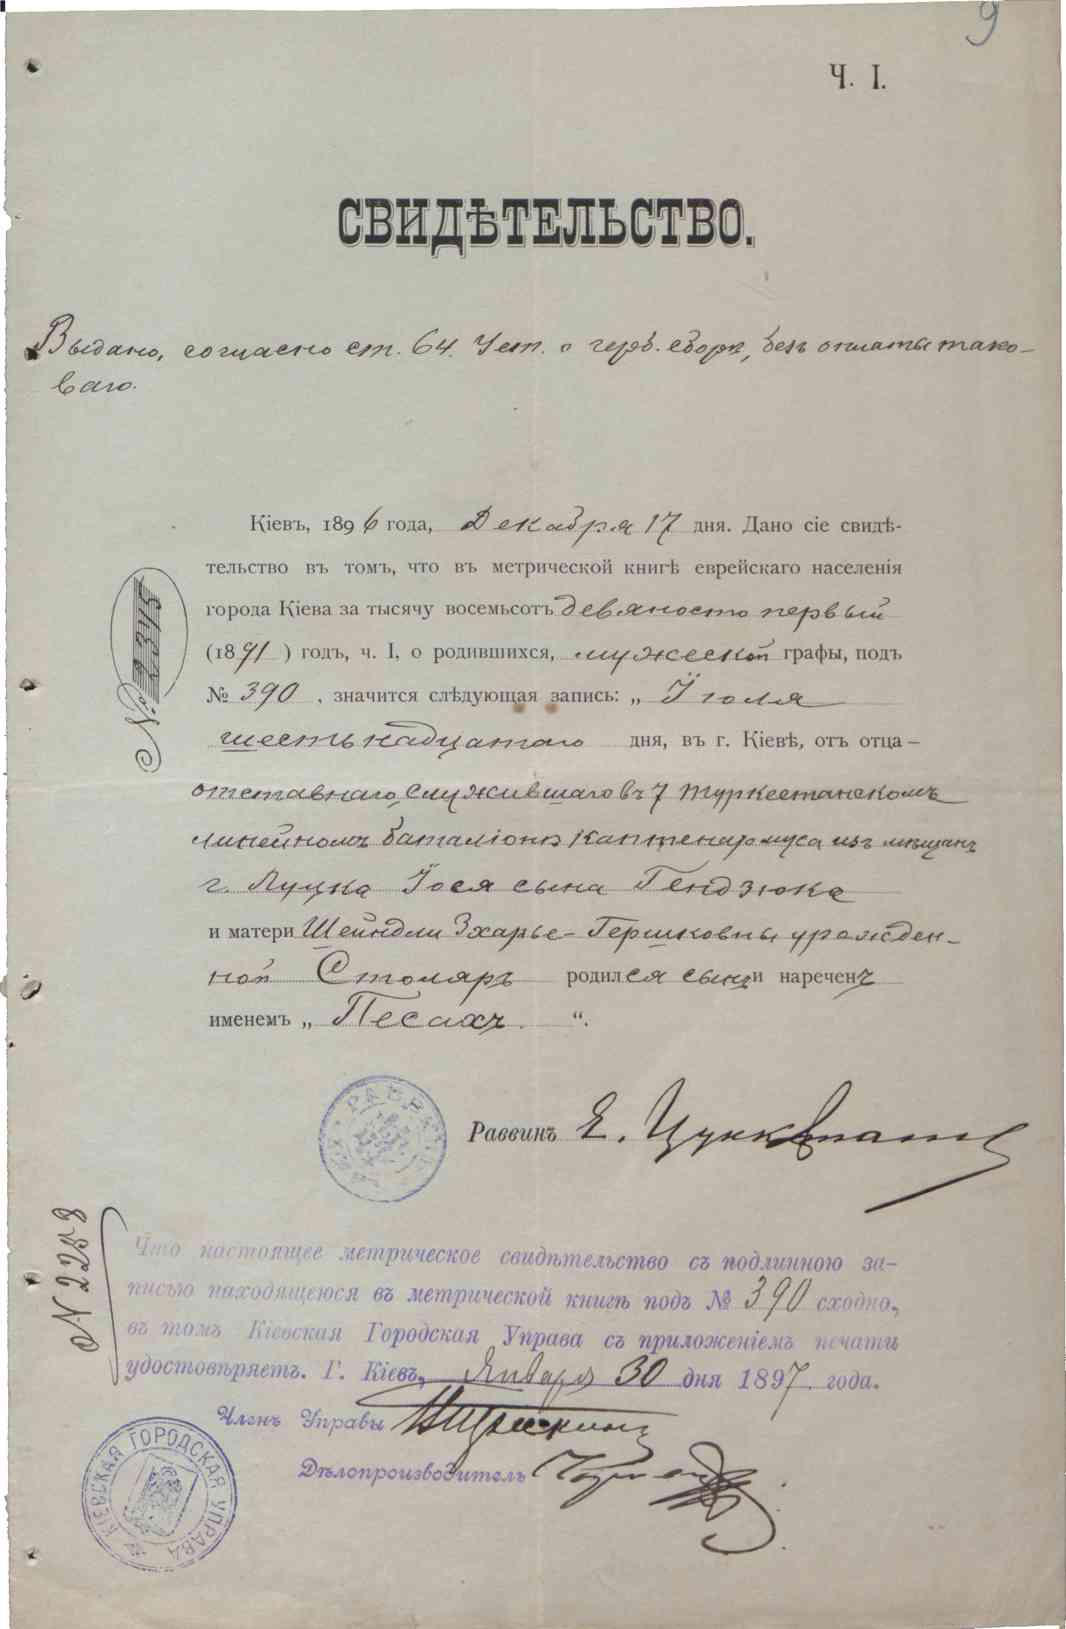 9
Ч. I.
СВИДѢТЕЛЬСТВО.
Выдано, согласно ст. 64. Уст. о герб. сборѣ, безъ оплаты тако-
ваго.
Кіевъ, 1896 года, Декабря 17 дня. Дано сіе свидѣ-
тельство въ томъ, что въ метрической книгѣ еврейскаго населенія
города Кіева за тысячу восемьсотъ девяносто первый
(1891) годъ, ч. I, о родившихся, мужеской графы, подъ
№ 390, значится слѣдующая запись: „ Іюля
шестьнадцатаго дня, въ г. Кіевѣ, отъ отца –
отставнаго, служившаго въ 7 Туркестанскомъ
линейномъ баталіонѣ каптенармуса изъ мѣщанъ
г. Луцка Іося сына Гендзюка
и матери Шейндли Зхарье-Гершковны урожден-
ной Столяръ родился сынъ и нареченъ
именемъ „ Песахъ. “.
№ 2345
РАВВИНЪ
Раввинъ Е. Цуккерманъ
№ 2258
Что настоящее метрическое свидѣтельство съ подлинною за-
писью находящеюся въ метрической книгѣ подъ № 390 сходно,
въ томъ Кіевская Городская Управа съ приложеніемъ печати
удостовѣряетъ. Г. Кіевъ, Января 30 дня 1897 года.
Членъ Управы
Дѣлопроизводитель
КІЕВСКАЯ ГОРОДСКАЯ УПРАВА